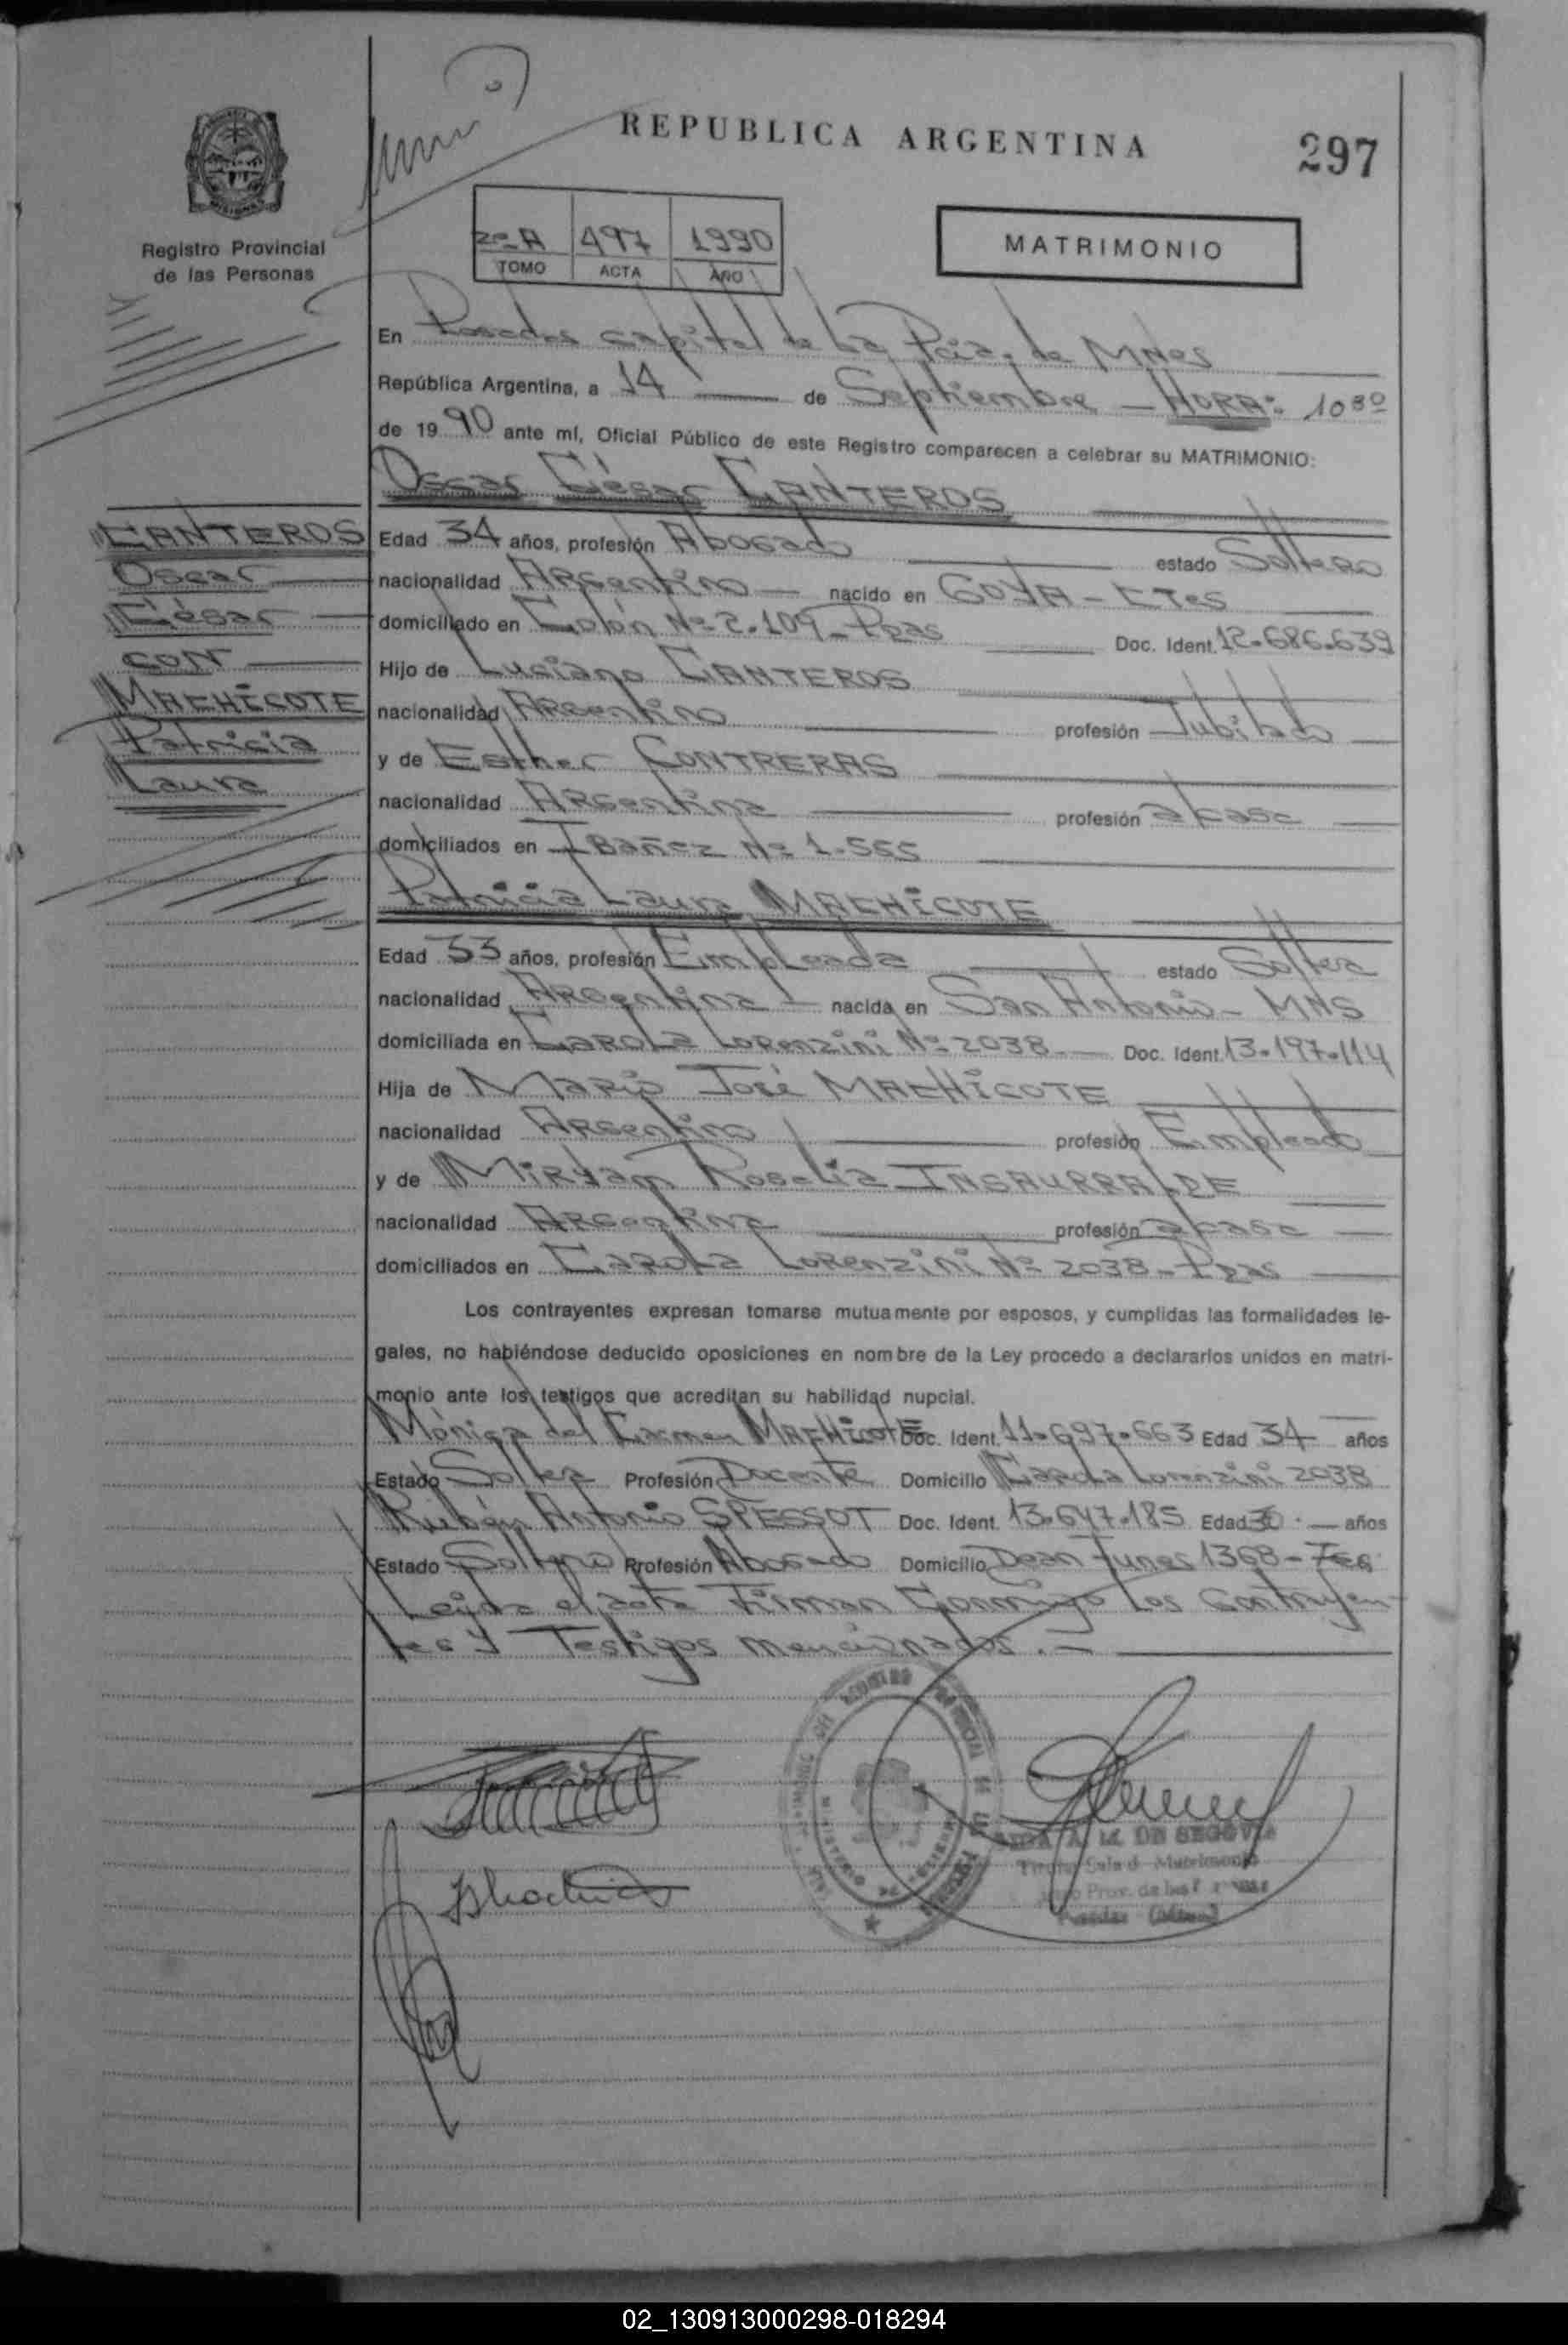 REPUBLICA ARGENTINA
297
Registro Provincial
de las Personas
2º A 497 1990
TOMO ACTA AÑO
MATRIMONIO
En Posadas capital de La Pcia. de Mnes
República Argentina, a 14 de Septiembre - HORA: 10 30
de 1990 ante mí, Oficial Público de este Registro comparecen a celebrar su MATRIMONIO:
Oscar César CANTEROS
CANTEROS
Oscar
César
CON
MACHICOTE
Patricia
Laura
Edad 34 años, profesión Abogado estado Soltero
nacionalidad Argentino nacido en GOYA - CTES
domiciliado en Colón Nº 2.109 - Pdas Doc. Ident. 12.686.639
Hijo de Luciano CANTEROS
nacionalidad Argentino profesión Jubilado
y de Esther CONTRERAS
nacionalidad Argentina profesión a/casa
domiciliados en IBAÑEZ Nº 1.565
Patricia Laura MACHICOTE
Edad 33 años, profesión Empleada estado Soltera
nacionalidad Argentina nacida en San Antonio - MNS
domiciliada en CAROLA Lorenzini Nº 2038 Doc. Ident. 13.197.114
Hija de Mario José MACHICOTE
nacionalidad Argentino profesión Empleado
y de Miryam Rosalia INSAURRALDE
nacionalidad Argentina profesión a/casa
domiciliados en CAROLA Lorenzini Nº 2038 - Pdas
Los contrayentes expresan tomarse mutuamente por esposos, y cumplidas las formalidades le-
gales, no habiéndose deducido oposiciones en nombre de la Ley procedo a declararlos unidos en matri-
monio ante los testigos que acreditan su habilidad nupcial.
Mónica del Carmen MACHICOTE Doc. Ident. 11.697.663 Edad 34 años
Estado Soltera Profesión Docente Domicilio Carola Lorenzini 2038
Rubén Antonio SPESSOT Doc. Ident. 13.647.185 Edad 30 años
Estado Soltero Profesión Abogado Domicilio Dean Funes 1368
Leída el acta Firman Conmigo Los Contrayen-
tes y Testigos mencionados.
M. DE SEGOVIA
02_130913000298-018294